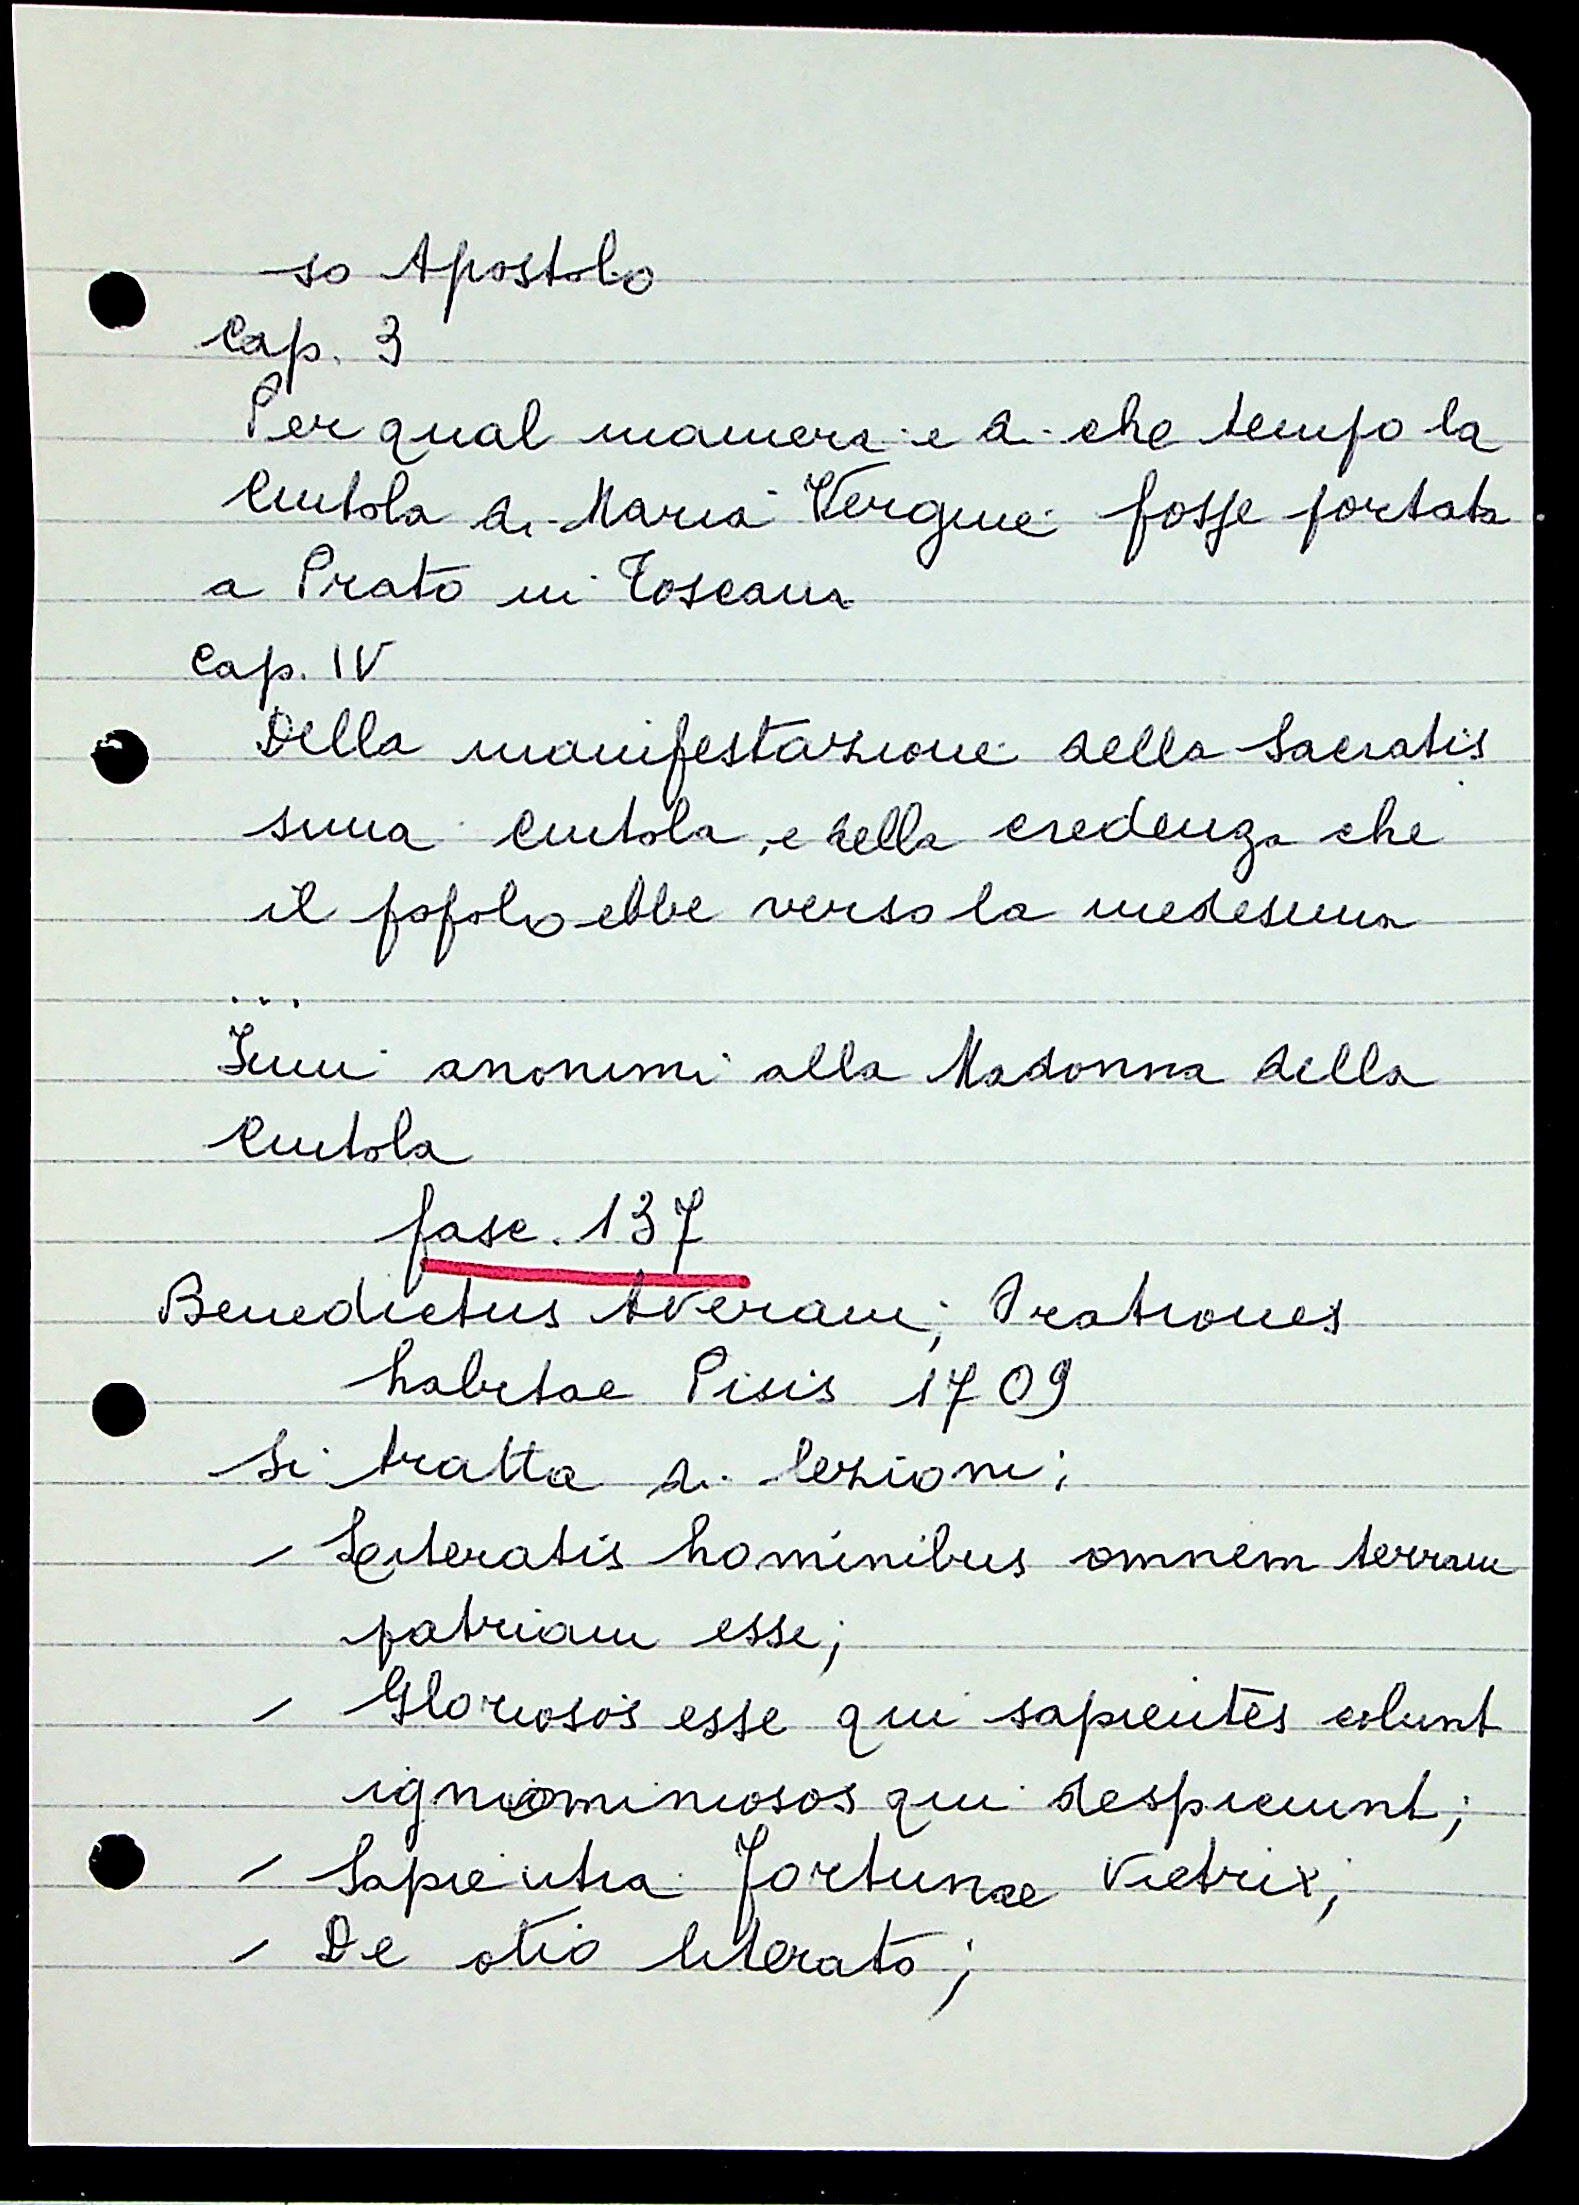 so Apostolo
Cap. 3
Per qual maniera e di che tempo la
Cintola di Maria Vergine fosse portata
a Prato in Toscana
Cap. IV
Della manifestazione della Sacratis
sima Cintola, e della credenza che
il popolo ebbe verso la medesima
...
Inni anonimi alla Madonna della
Cintola
fasc. 137
Benedictus Averani; Orationes
habitae Pisis 1709
Si tratta di lezioni:
- Literatis hominibus omnem terram
patriam esse;
- Gloriosos esse qui sapientes colunt
ignominiosos qui despiciunt;
- Sapientia Fortunae Victrix;
- De otio literato;